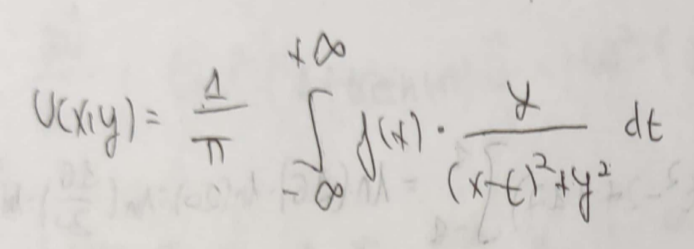 U(x,y) = \frac{1}{\pi} \int_{-\infty}^{+\infty} f(x) \cdot \frac{y}{(x-t)^2+y^2} dt